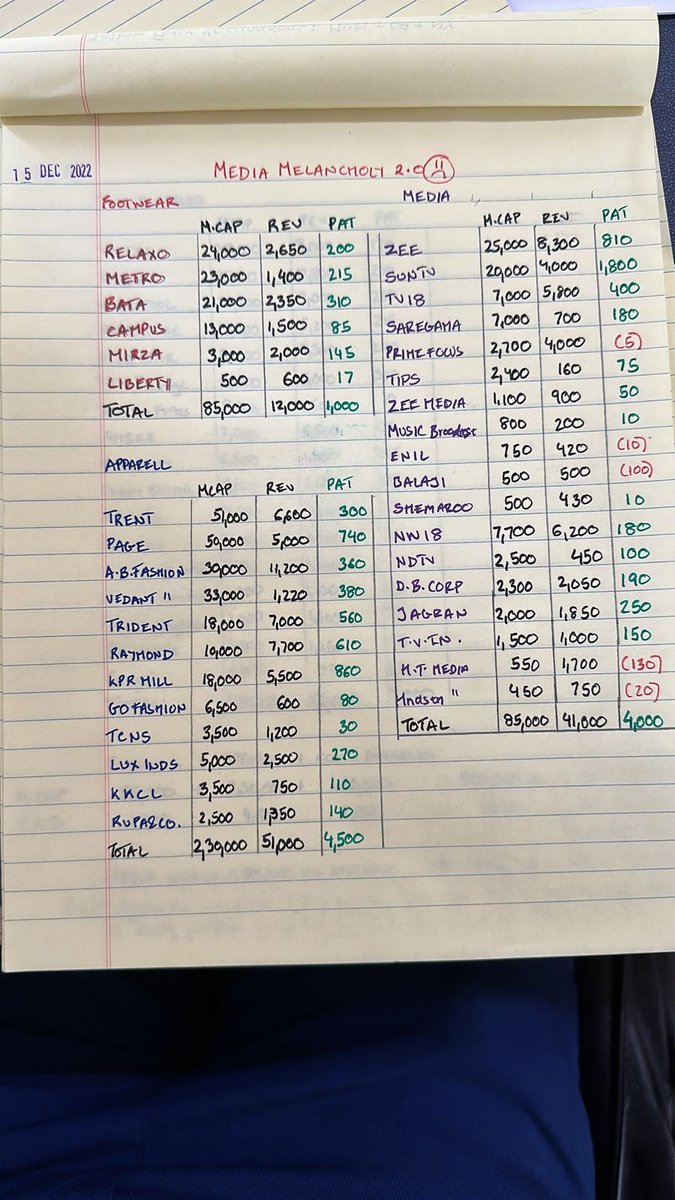 15 DEC 2022
MEDIA MELANCHOLY 2.0
FOOTWEAR
M.CAP REV PAT
RELAXO 24,000 2,650 200
METRO 23,000 1,400 215
BATA 21,000 2,350 310
CAMPUS 13,000 1,500 85
MIRZA 3,000 2,000 145
LIBERTY 500 600 17
TOTAL 85,000 12,000 1,000
APPARELL
MCAP REV PAT
TRENT 51,000 6,600 300
PAGE 50,000 5,000 740
A.B.FASHION 30,000 11,200 360
VEDANT " 33,000 1,220 380
TRIDENT 18,000 7,000 560
RAYMOND 10,000 7,700 610
KPR MILL 18,000 5,500 860
GO FASHION 6,500 600 80
TCNS 3,500 1,200 30
LUX INDS 5,000 2,500 270
KKCL 3,500 750 110
RUPA&CO. 2,500 1,350 140
TOTAL 2,30,000 51,000 4,500
MEDIA
M.CAP REV PAT
ZEE 25,000 8,300 810
SUNTV 20,000 4,000 1,800
TV18 7,000 5,800 400
SAREGAMA 7,000 700 180
PRIME FOCUS 2,700 4,000 (5)
TIPS 2,400 160 75
ZEE MEDIA 1,100 900 50
MUSIC Broadcast 800 200 10
ENIL 750 420 (10)
BALAJI 500 500 (100)
SHEMAROO 500 430 10
NW18 7,700 6,200 180
NDTV 2,500 450 100
D.B.CORP 2,300 2,050 190
JAGRAN 2,000 1,850 250
T.V.TN. 1,500 1,000 150
H.T MEDIA 550 1,700 (130)
Hndson " 450 750 (20)
TOTAL 85,000 41,000 4,000